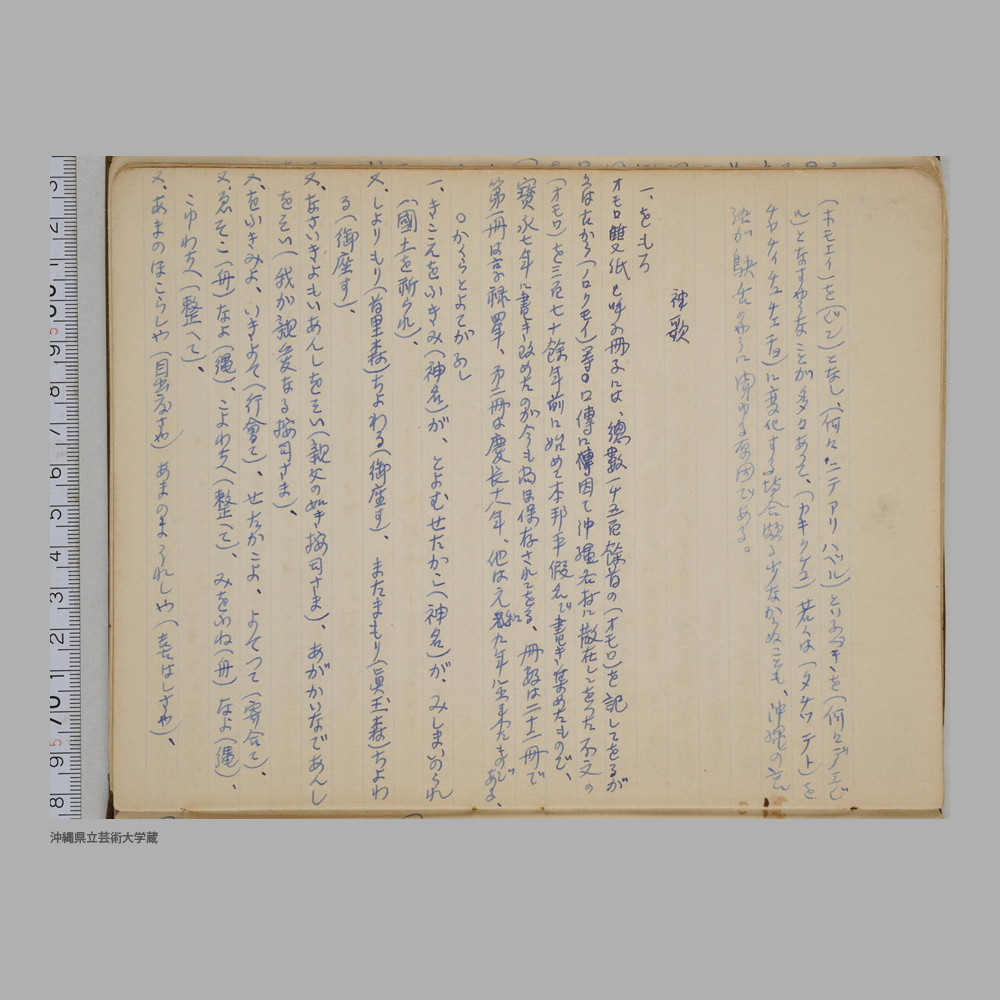 (ホモエイ)を(どこ)となし、(何々ニテアリハベル)といふマキンを(何々デエビ
ル)となすやうなことが多々あつて、(カキクケコ)若くは(タチツテト)を
(チヤチイチユチエチヨ)に変化する場合頗る少なからぬことも、沖縄の言
語が鴃舌のやうに聞ゆる原因である。
神歌
一、をもろ
オモロ雙紙と呼ぶ冊子には、總數一千五百餘首の(オモロ)を記してをるが
るは古から(ノロクモイ)等の口傳に傳因て沖縄各村に散在してをつた不文の
(オモロ)を三百七十餘年前に始めて本邦平假名で書き集めたもので、
寳永七年に書き改めたのが今も尚ほ保存されてをる、冊数は二十二冊で
第一冊は享禄四年、第二冊は慶長十八年、他は元和九年に出来たものである、
○からとよてがふし
一、きこえをふきみ(神名)が、とよむせたかこ(神名)が、みしまいのられ
(國土を祈くれ)、
又、しよりもり(首里森)ちよわる(御座す)、またまもり(眞玉森)ちよわ
る(御座す)、
又、なさいきよもいあんしをそい(親父の如き按司さま)、あがかいなであんし
をそい(我が親愛なる按司さま)、
又、をふきみよ、いきよて(行會て)、せたかこよ、よそつて(寄合て)、
又、ゑそこ(舟)なよ(縄)、こよわちへ(整へて)、みをふね(舟)なよ(縄)、
こゆわちへ(整へて)、
又、あまのほこらしや(目出度さや)あまのまうれしや(喜はしさや)、
沖縄県立芸術大学蔵